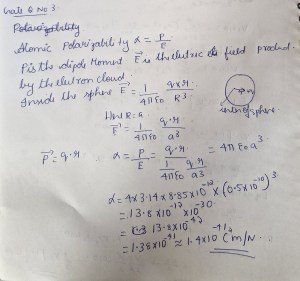 Gate Q No 3
Polarizability
Atomic Polarizability α = P/E
P is the dipole Moment E⃗ is the electric field product
by the electron cloud.
Inside the sphere E⃗ = 1/4πε₀ q×r/R³
Here R=a
E⃗ = 1/4πε₀ q·r/a³
P⃗ = q·r α = P/E = q·r / (1/4πε₀ q·r/a³) = 4πε₀a³
α = 4×3.14×8.85×10⁻¹²×(0.5×10⁻¹⁰)³
= 13.8×10⁻¹²×10⁻³⁰
= 13.8×10⁻⁴²
= 1.38×10⁻⁴¹ ≈ 1.4×10⁻⁴¹ C²m/N